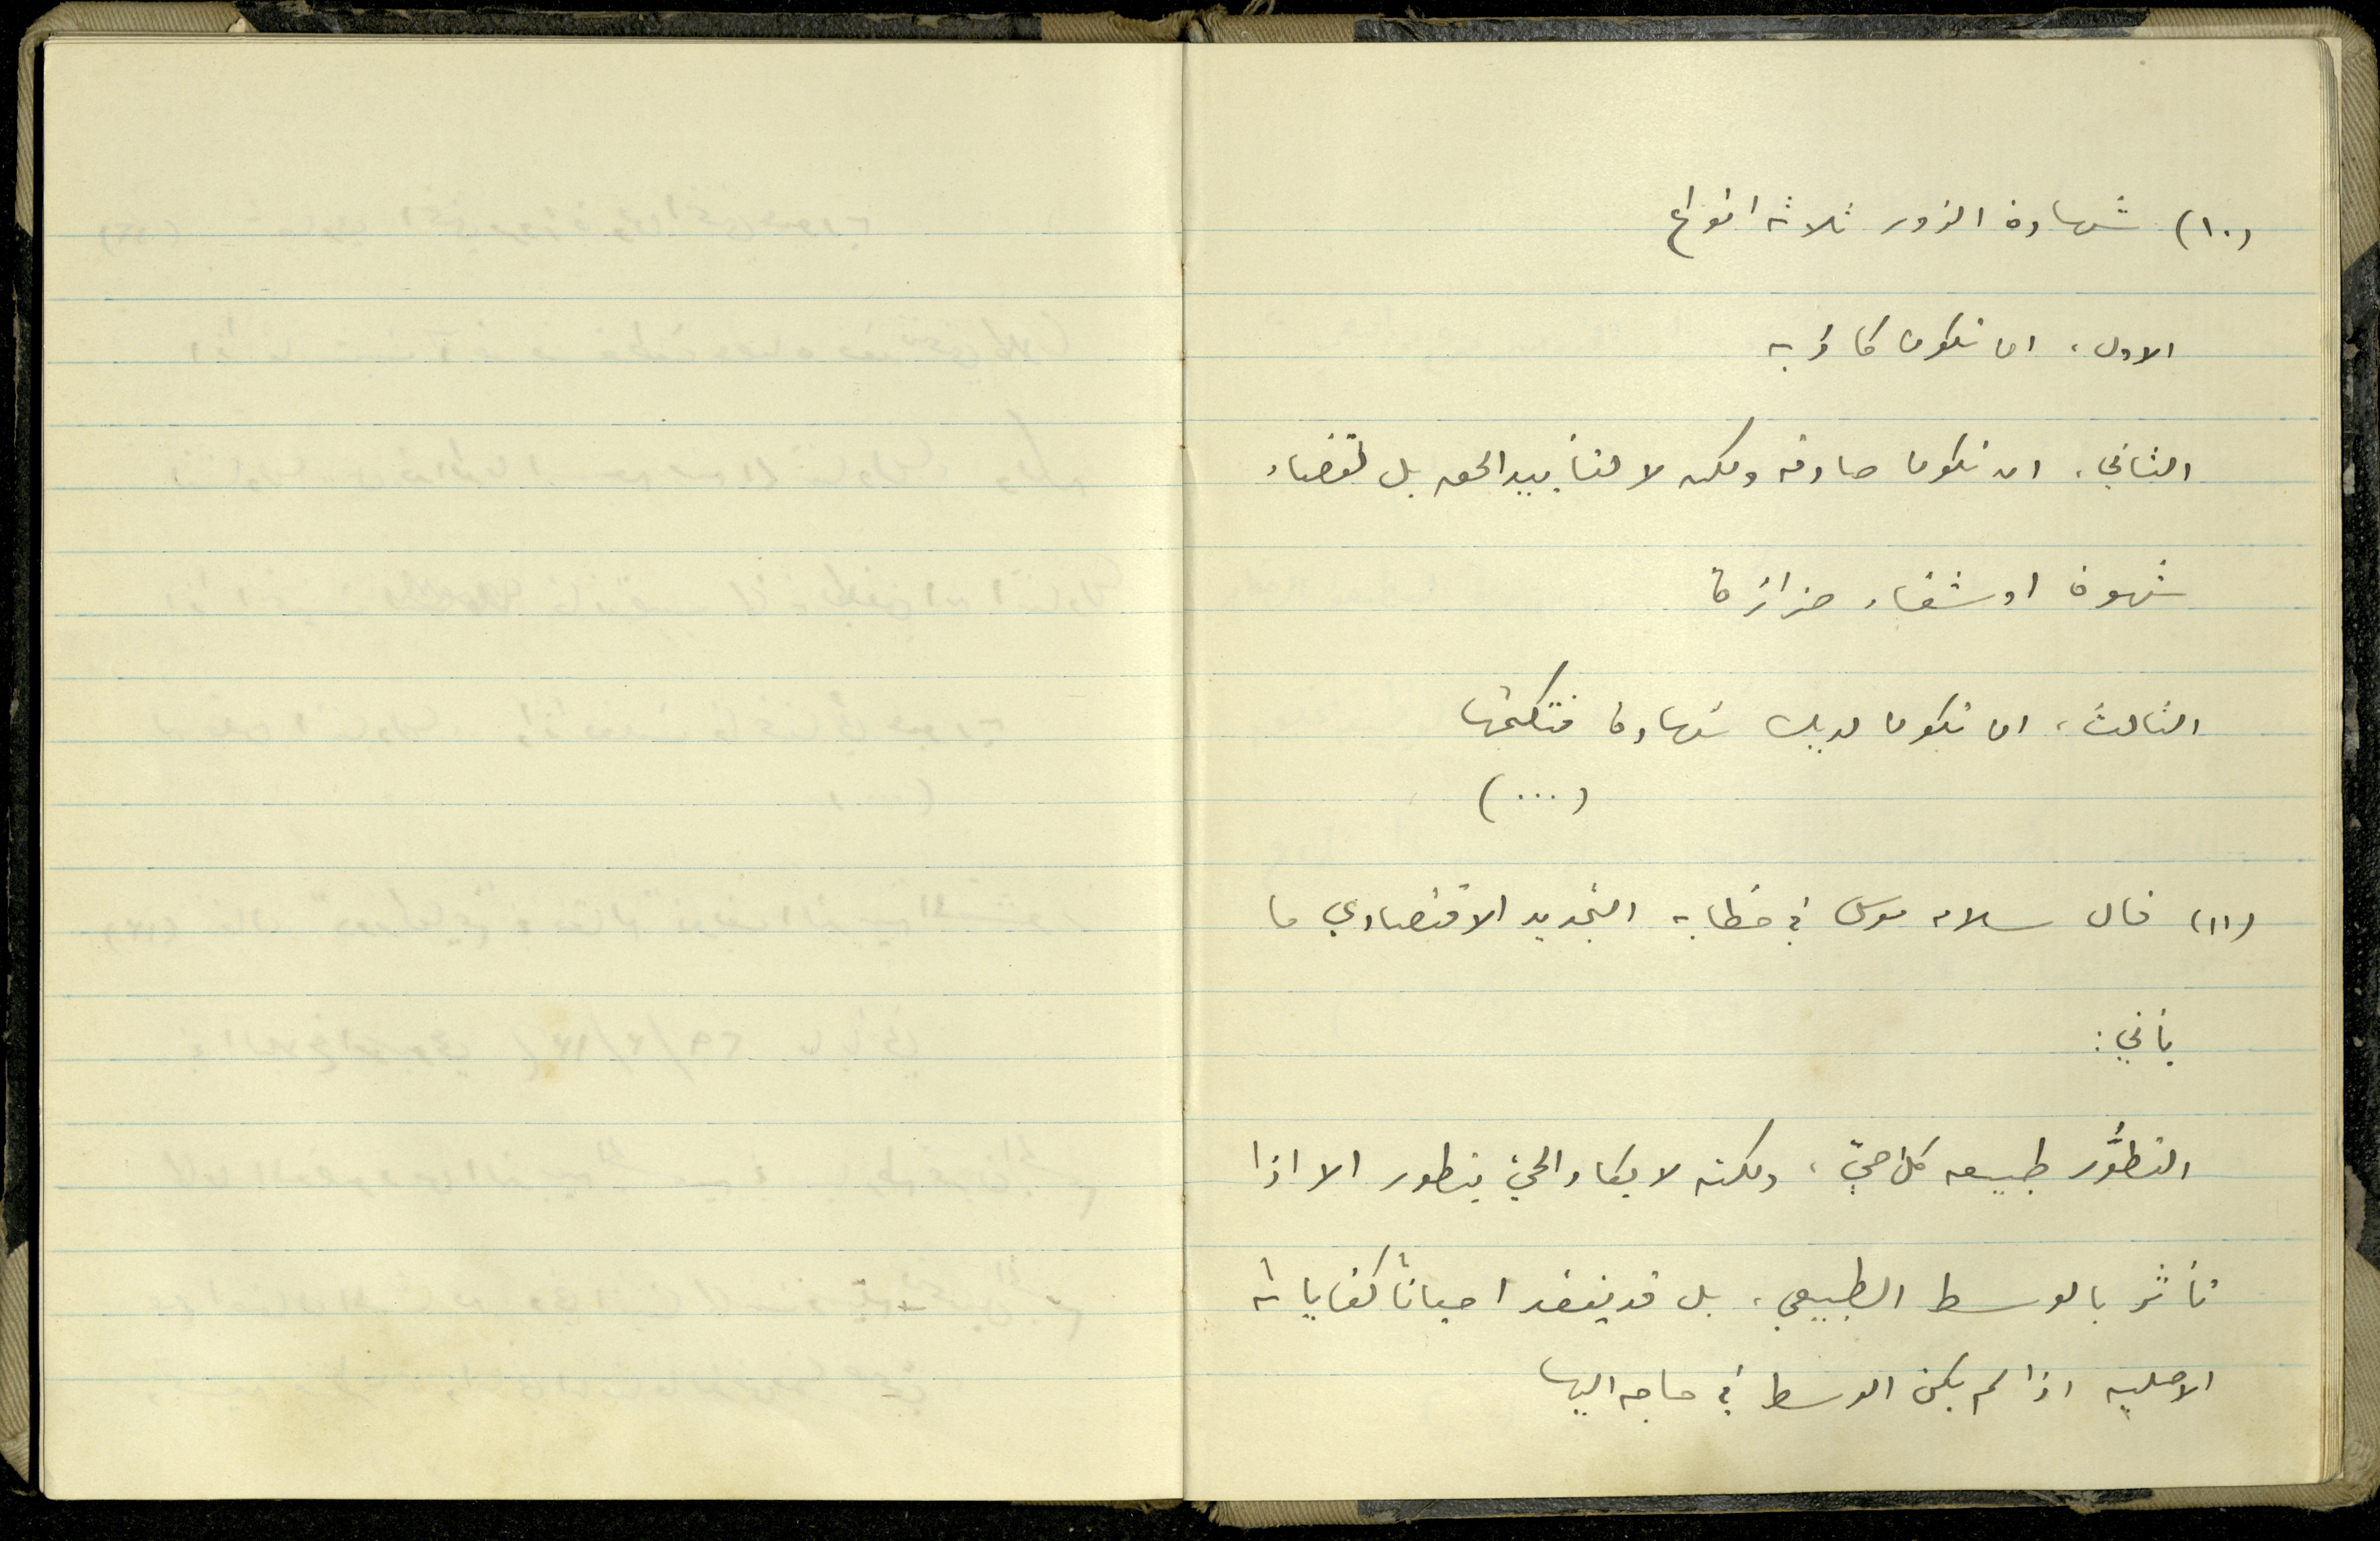 (١٠) شهادة الزور ثلاثه انواع
الاول، ان تكون كاذبه
الثاني، ان تكون صادقه ولكن لا لتأييد الحق بل لقضاء
شهوة او شفاء حزازة
الثالث، ان تكون لديك شهادة فتكتمها
(...)
(١١) قال سلامه موسى في خطابه التجديد الاقتصادي ما
يأتي:
التطوُّر طبيعه كل حيّ، ولكنه لا يكاد الحيّ يتطور الا اذا
تأثر بالوسط الطبيعي، بل قد يفقد احياناً كفاياته
الاصليه اذا لم يكن الوسط في حاجه اليها